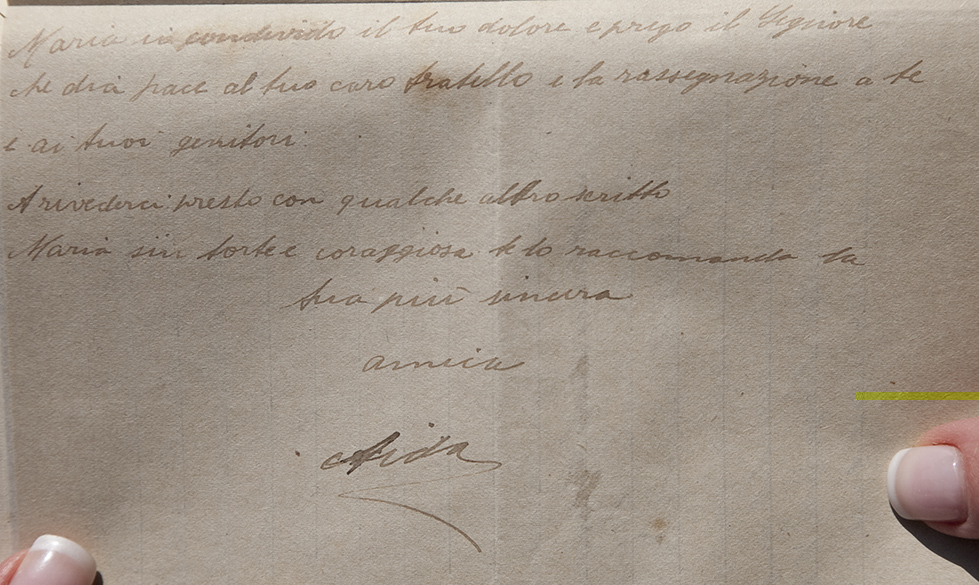 Maria io condivido il tuo dolore e prego il Signore
che dia pace al tuo caro fratello e la rassegnazione a te
e ai tuoi genitori.
Arivederci presto con qualche altro scritto
Maria sii forte e coraggiosa te lo raccomanda la
tua più sincera
amica
Aida